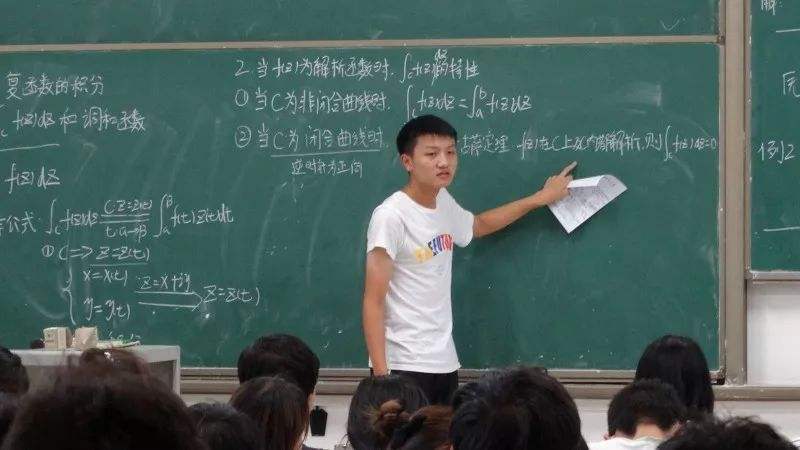 复函数的积分
f(z)dz 和 调和函数
f(z)dz
公式: ∫_C f(z)dz \frac{C: z=z(t)}{t: α→β} ∫_α^β f(t)z'(t)dt
① C => z=z(t)
x=x(t)
y=y(t)
z=x+iy
z=z(t)
2. 当f(z)为解析函数时, ∫_C f(z)dz 的特性
① 当C为非闭合曲线时. ∫_C f(z)dz = ∫_a^b f(z)dz
② 当C为闭合曲线时
逆时针为正向
定理 f(z)在C上及C内解析, 则∫_C f(z)dz=0
例2